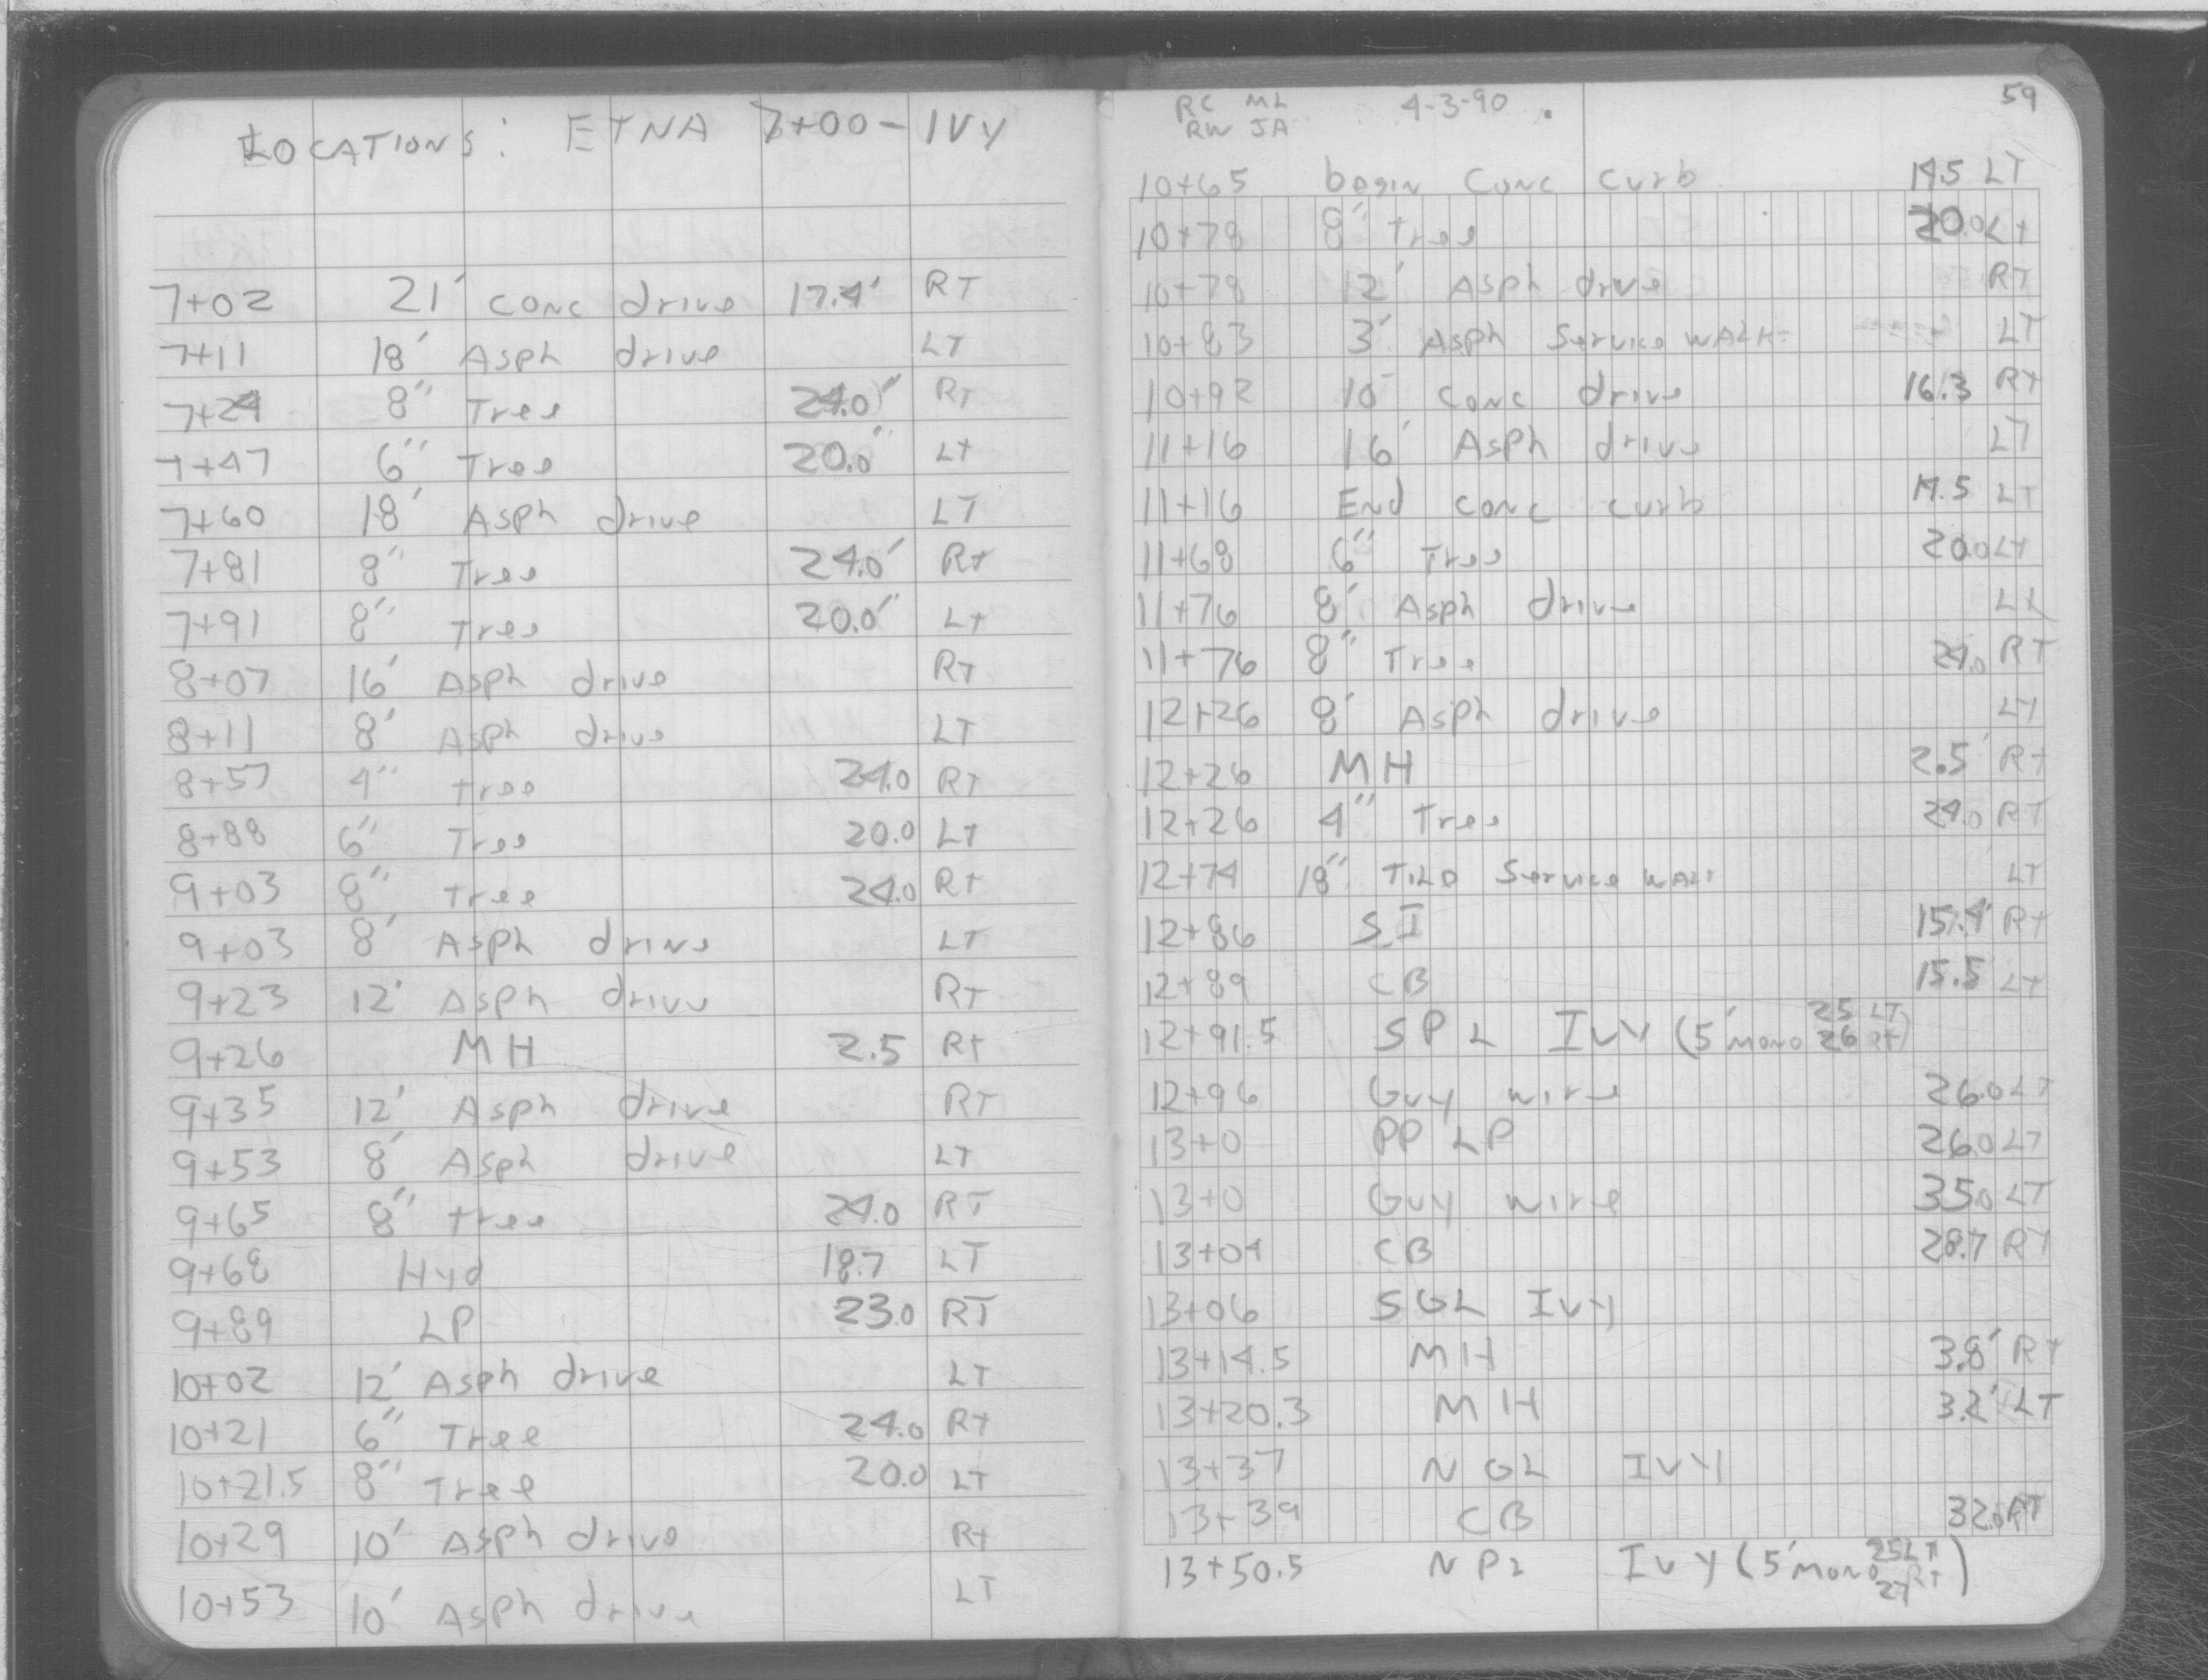 LOCATIONS: ETNA 7+00 - IVY
7+02 21' CONC drive 17.4' RT
7+11 18' Asph drive LT
7+24 8" Tree 24.0' RT
7+47 6" Tree 20.0' Lt
7+60 18' Asph drive LT
7+81 8" Tree 24.0' Rt
7+91 8" Tree 20.0' Lt
8+07 16' Asph drive RT
8+11 8' Asph drive LT
8+57 4" tree 24.0 Rt
8+88 6" Tree 20.0 Lt
9+03 8" tree 24.0 Rt
9+03 8' Asph drive LT
9+23 12' Asph drive RT
9+26 MH 2.5 Rt
9+35 12' Asph drive RT
9+53 8' Asph drive LT
9+65 8" tree 24.0 RT
9+68 Hyd 18.7 LT
9+89 LP 23.0 RT
10+02 12' Asph drive LT
10+21 6" Tree 24.0 Rt
10+21.5 8" Tree 20.0 LT
10+29 10' Asph drive Rt
10+53 10' Asph drive LT
RC ML 4-3-90 59
RW JA
10+65 begin Conc curb 14.5 LT
10+78 8" Tree 20.0 Lt
10+78 12' Asph drive RT
10+83 3' Asph Service WALK LT
10+92 10' Conc drive 16.3 Rt
11+16 16' Asph drive LT
11+16 End conc curb 14.5 LT
11+68 6" Tree 20.0 Lt
11+76 8' Asph drive Lt
11+76 8" Tree 24.0 RT
12+26 8' Asph drive LT
12+26 MH 2.5' Rt
12+26 4" Tree 24.0 RT
12+74 18" Service WALK LT
12+86 SI 15.4' Rt
12+89 CB 15.5 Lt
12+91.5 SPL IVY (5' mono 25 LT 26 Rt)
12+96 Guy wire 26.0 LT
13+0 PP LP 26.0 LT
13+0 Guy wire 35.0 LT
13+04 CB 28.7 RT
13+06 SGL Ivy
13+14.5 MH 3.8' Rt
13+20.3 MH 3.2' LT
13+37 NGL IVY
13+39 CB 32.0 RT
13+50.5 NPL Ivy (5' mono 25 Lt 27 Rt)